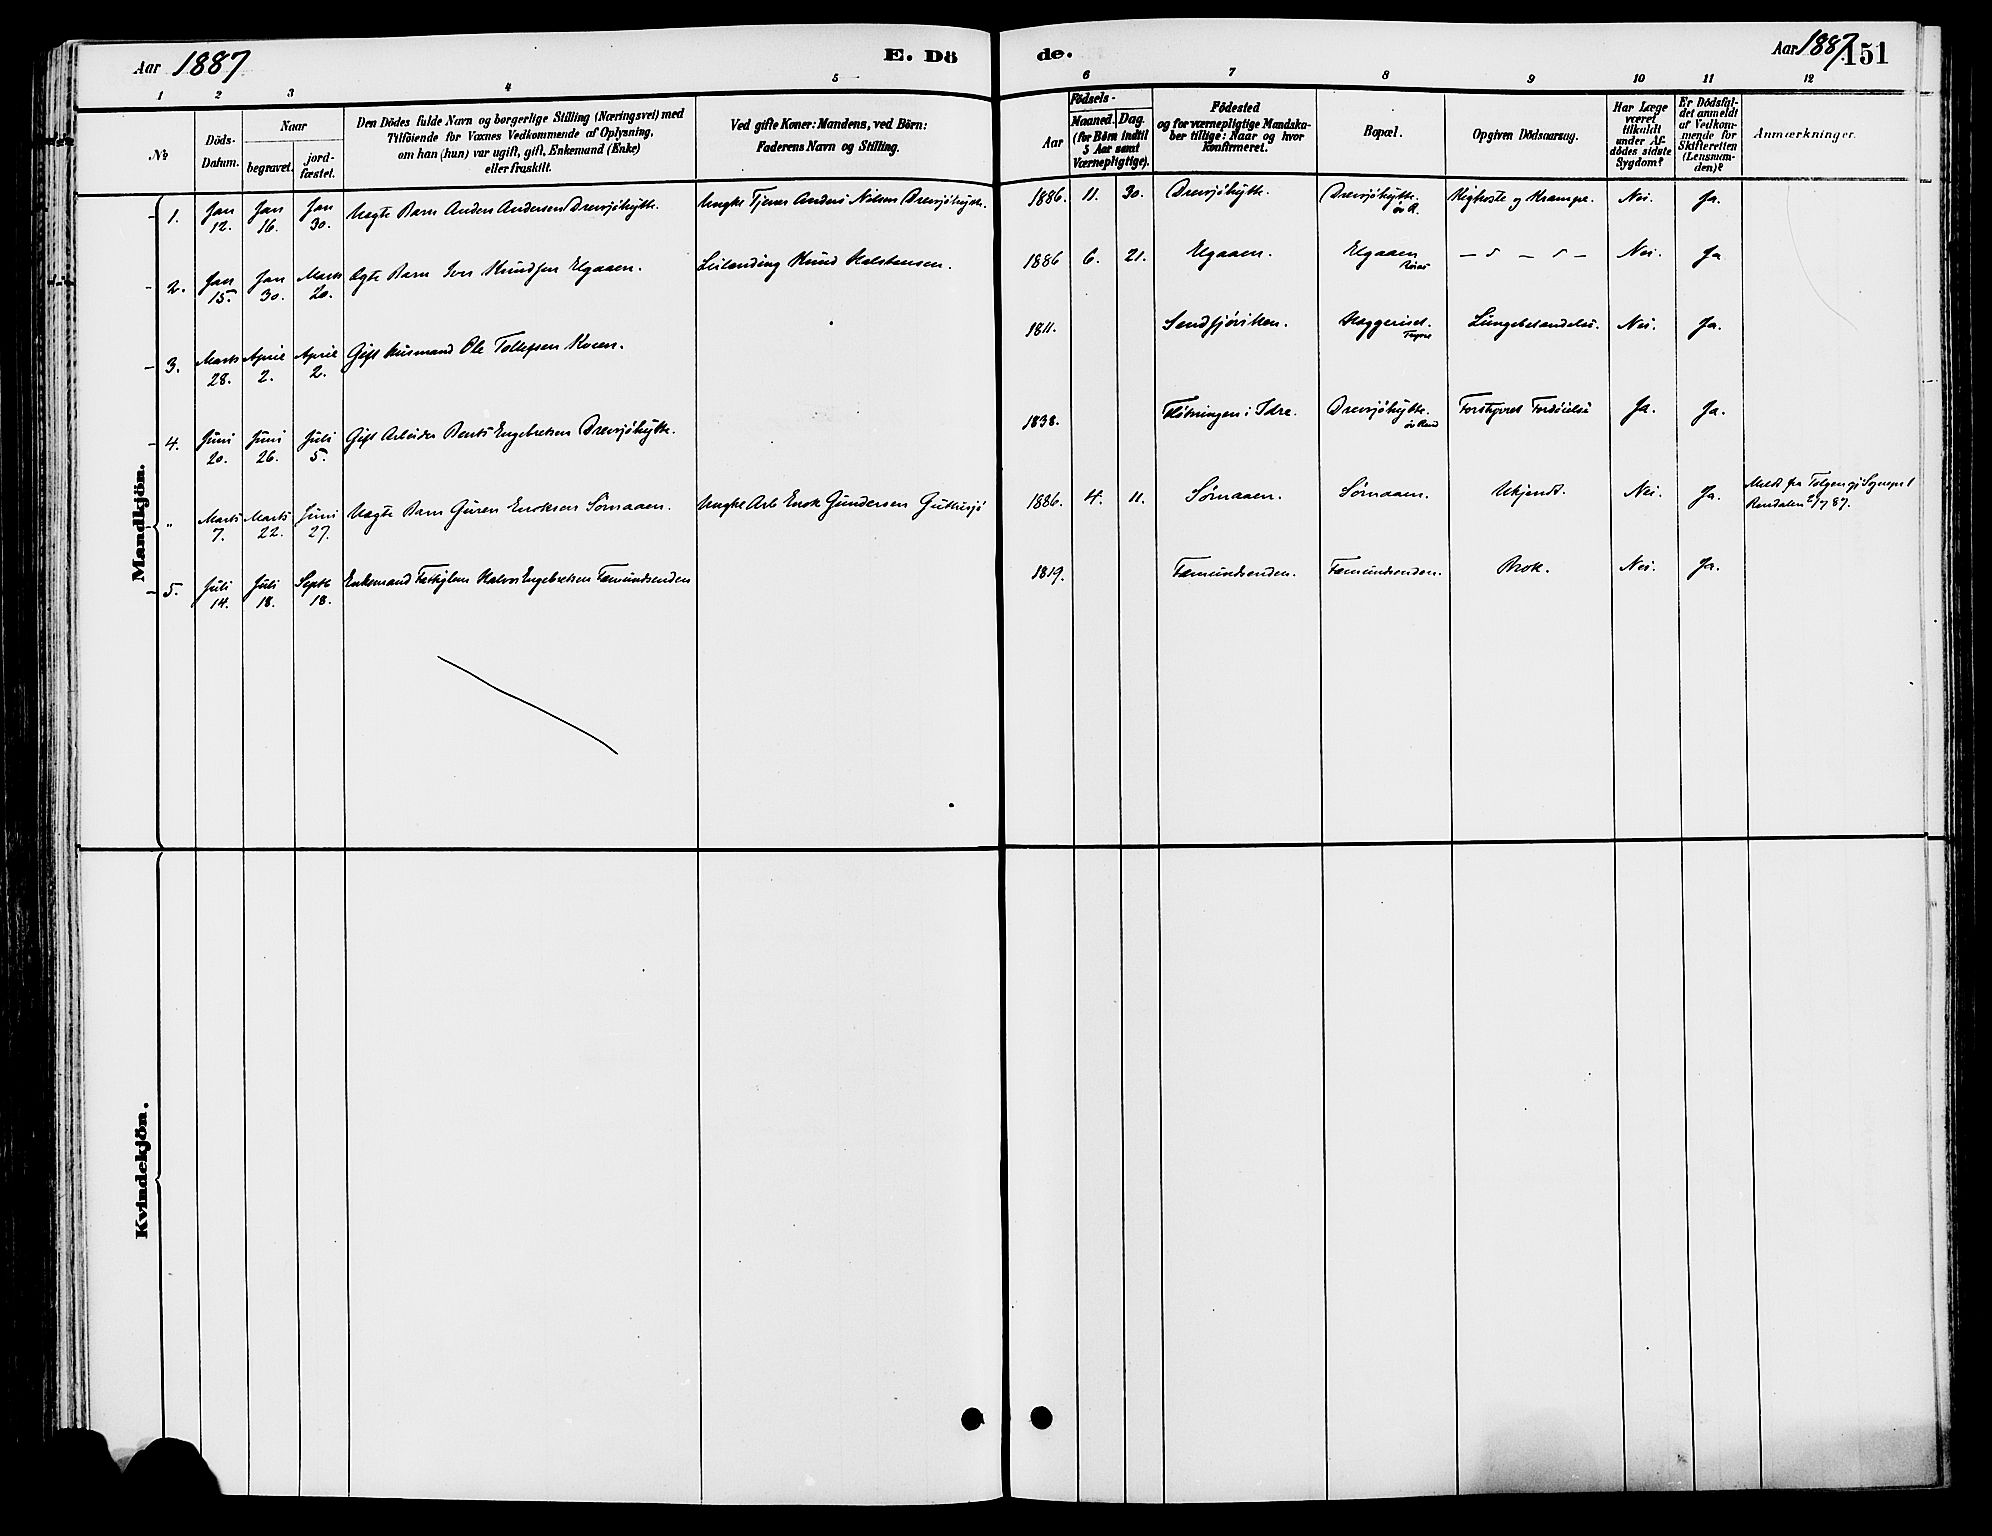 Aar 1887
E. Dö
de.
Aar 1887.
151
1 2 3 4 5 6 7 8 9 10 11 12
№
Döds-
Datum.
Naar
begravet.
jord-
fæstet.
Den Dödes fulde Navn og borgerlige Stilling (Næringsvei) med
Tilföiende for Voxnes Vedkommende af Oplysning,
om han (hun) var ugift, gift, Enkemand (Enke)
eller fraskilt.
Ved gifte Koner: Mandens, ved Börn:
Faderens Navn og Stilling.
Födsels-
Aar
Maaned. Dag.
(for Börn indtil
5 Aar samt
Værnepligtige).
Födested
og for værnepligtige Mandska-
ber tillige: Naar og hvor
konfirmeret.
Bopæl.
Opgiven Dödsaarsag.
Har Læge
været
tilkaldt
under Af-
dödes sidste
Sygdom?
Er Dödsfal-
det anmeldt
af Vedkom-
mende for
Skifteretten
(Lensman-
den)?
Anmærkninger.
Mandkjön.
1. Jan 12. Jan 16. Jan 30. Uægte Barn Anders Andersen Drevsjöhytte. Ungk Tjener Anders Nilsen Drevsjöhytte. 1886. 11. 30. Drevsjöhytte. Drevsjöhytte. Kighoste og Krampe. Nei. Ja.
2. Jan 15. Jan 30. Marts 20. Ægte Barn Iver Knudsen Elgaaen. Leilending Knud Halstensen. 1886 6. 21. Elgaaen. Elgaaen — " — " — Nei. Ja
3. Marts 28. April 2. April 2. Gift Husmand Ole Tollefsen Moen. 1811. Sendsjøviken. Haggeriset. Lungebetændelse. Nei. Ja.
4. Juni 20. Juni 26. Juli 5. Gift Arbeider Bernt Engebretsen Drevsjöhytte. 1838. Fløtningen i Idre. Drevsjöhytte. Forstyrret Fordøielse Ja. Ja.
" Marts 7. Marts 22. Juni 27. Uægte Barn Guren Eroksen Sømaaen. Ungk Arb Enok Gundersen 1886. 4. 11. Sømaaen. Sømaaen. Ukjendt. Nei. Ja. Meldt fra Tolgen
Rendalen 87.
5. Juli 14. Juli 18. Septb 18. Enkemand Halvor Engebretsen Fæmundsenden 1819. Fæmundsenden. Fæmundsenden. Brok. Nei. Ja.
Kvindekjön.